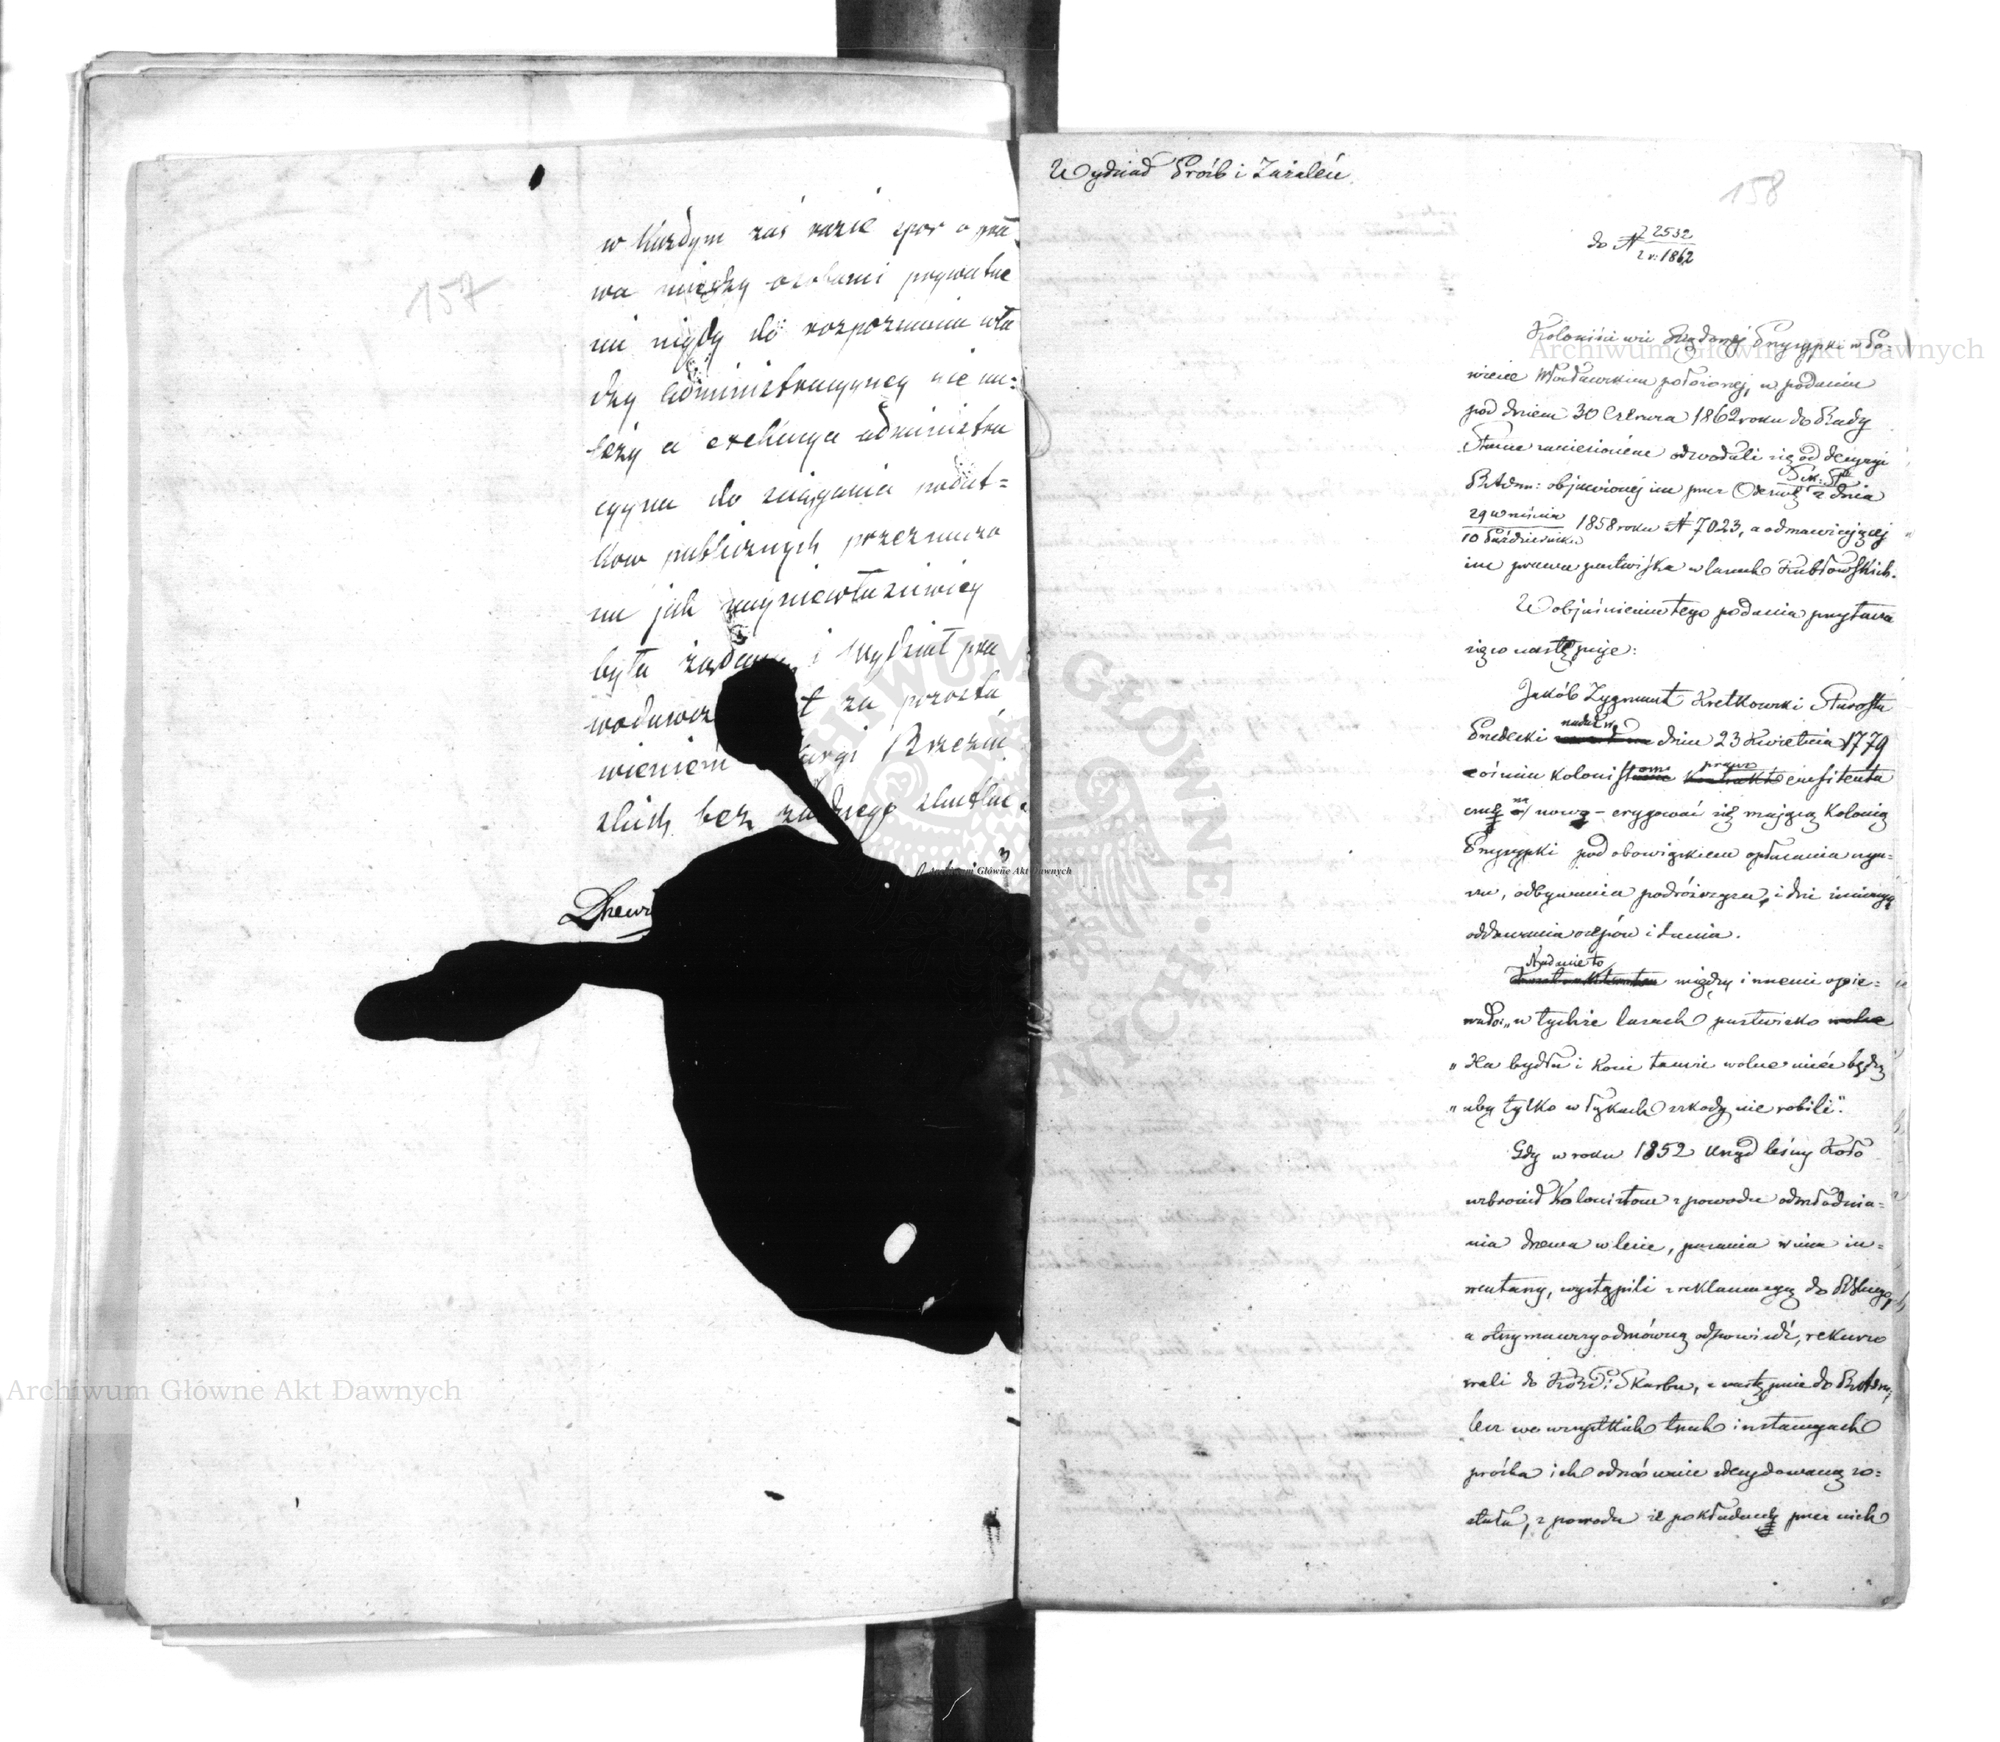 157
w każdym zaś razie spor o pra-
wa między osobami prywatne
mi nigdy do rozpoznania wła
dzy administracyjnej nie na=
leży a exekucya administra
cyjna do ściągania podat=
kow publicznych przeznaczo
na jak najniewłaściwiej
była żądaną, i Wydział pra
za pozosta
wieniem Brzeziń
skich bez żadnego skutku.
Wydział Próśb i Zażaleń.
158
do N 2532
z r: 1862
Koloniści wsi Rządowej Przysypki w Po-
wiecie Włocławskim położonej, w podaniu
pod dniem 30 Czerwca 1862 roku do Rady
Stanu zaniesionem odwołali się od decyzyi
R Adm: objawionej im przez Sek: St:
z dnia
29 września
10 Października 1858 roku N 7023, a odmawiającej
im prawa pastwiska w lasach Kubłowskich.
W objaśnieniu tego podania przytacza
się co następuje:
Jakób Zygmunt Kretkowski Starosta
Przedecki nadał w dniu 23 Kwietnia 1779
ośmiu kolonistom prawo emfiteuta
czne na nowo-erygować się mającą Kolonię
Przysypki pod obowiązkiem opłacania czyn-
szu, odbywania podróżczyzn, i dni
oddawania osepów i dania.
Nadanie to między innemi opie-
wało: „w tychże lasach pastwisko
„dla bydła i koni tamże wolne mieć będą
„aby tylko w łąkach szkody nie robili".
Gdy w roku 1852 Urząd leśny Koło
wzbronił Kolonistom z powodu odmładnia-
nia drzewa w lesie, pasania w nim in-
wentarzy, wystąpili z reklamacyą do
a otrzymawszy odmówną odpowiedź, rekurso
wali do K R P: i Skarbu, a następnie do R Adm;
lecz we wszystkich trzech instancyach
prośba ich odmównie zdecydowaną zo-
stała, z powodu że pokładany przez nich